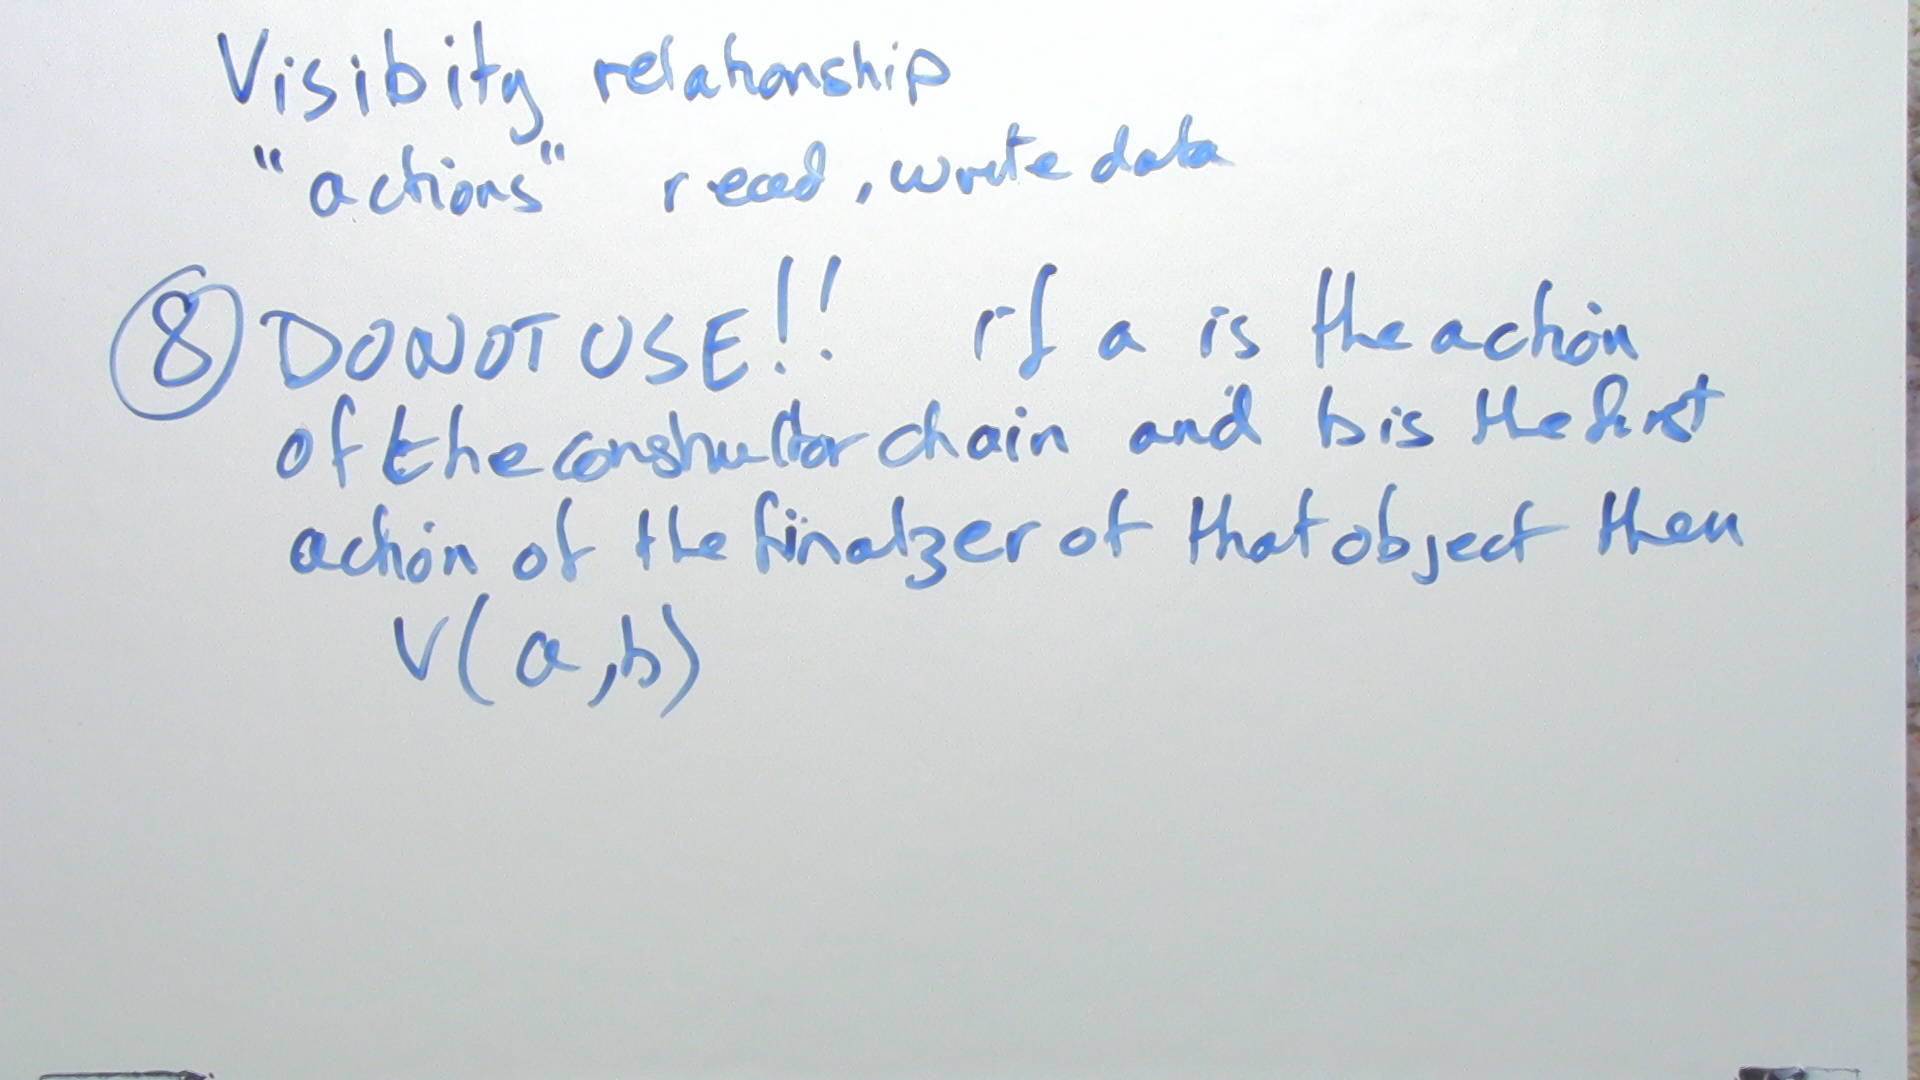 Visibity relationship
"actions" read, write data
8 DO NOT USE!! if a is the action
of the constructor chain and b is the first
action of the finalzer of that object then
V(a,b)